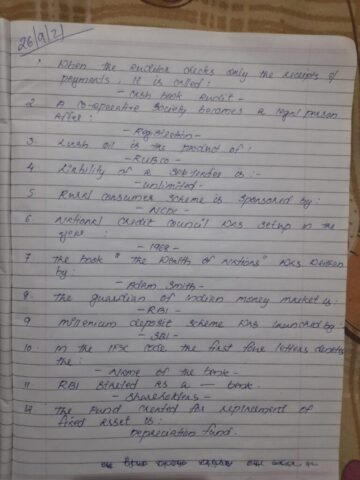 26/9/21
1. When the auditor checks only the receipts &
payments, it is called :
- Cash book Audit -
2. A co-operative society becomes a legal person
after :
- Registration -
3. Kush oil is the product of :
- RUBCO -
4. Liability of a sub-index is :-
- unlimited -
5. Rural consumer scheme is sponsored by :
- NCDC -
6. National Credit Council was setup in the
year :
- 1968 -
7. The book " The Wealth of Nations" was written
by :
- Adam Smith -
8. The guardian of Indian money market is :
- RBI -
9. Millenium deposit scheme was launched by :
- SBI -
10. In the IFSC code the first four letters denotes
the :
- Name of the bank -
11. RBI started as a — bank.
- Shareholders -
12. The fund created for replacement of
fixed asset is :
Depreciation fund.